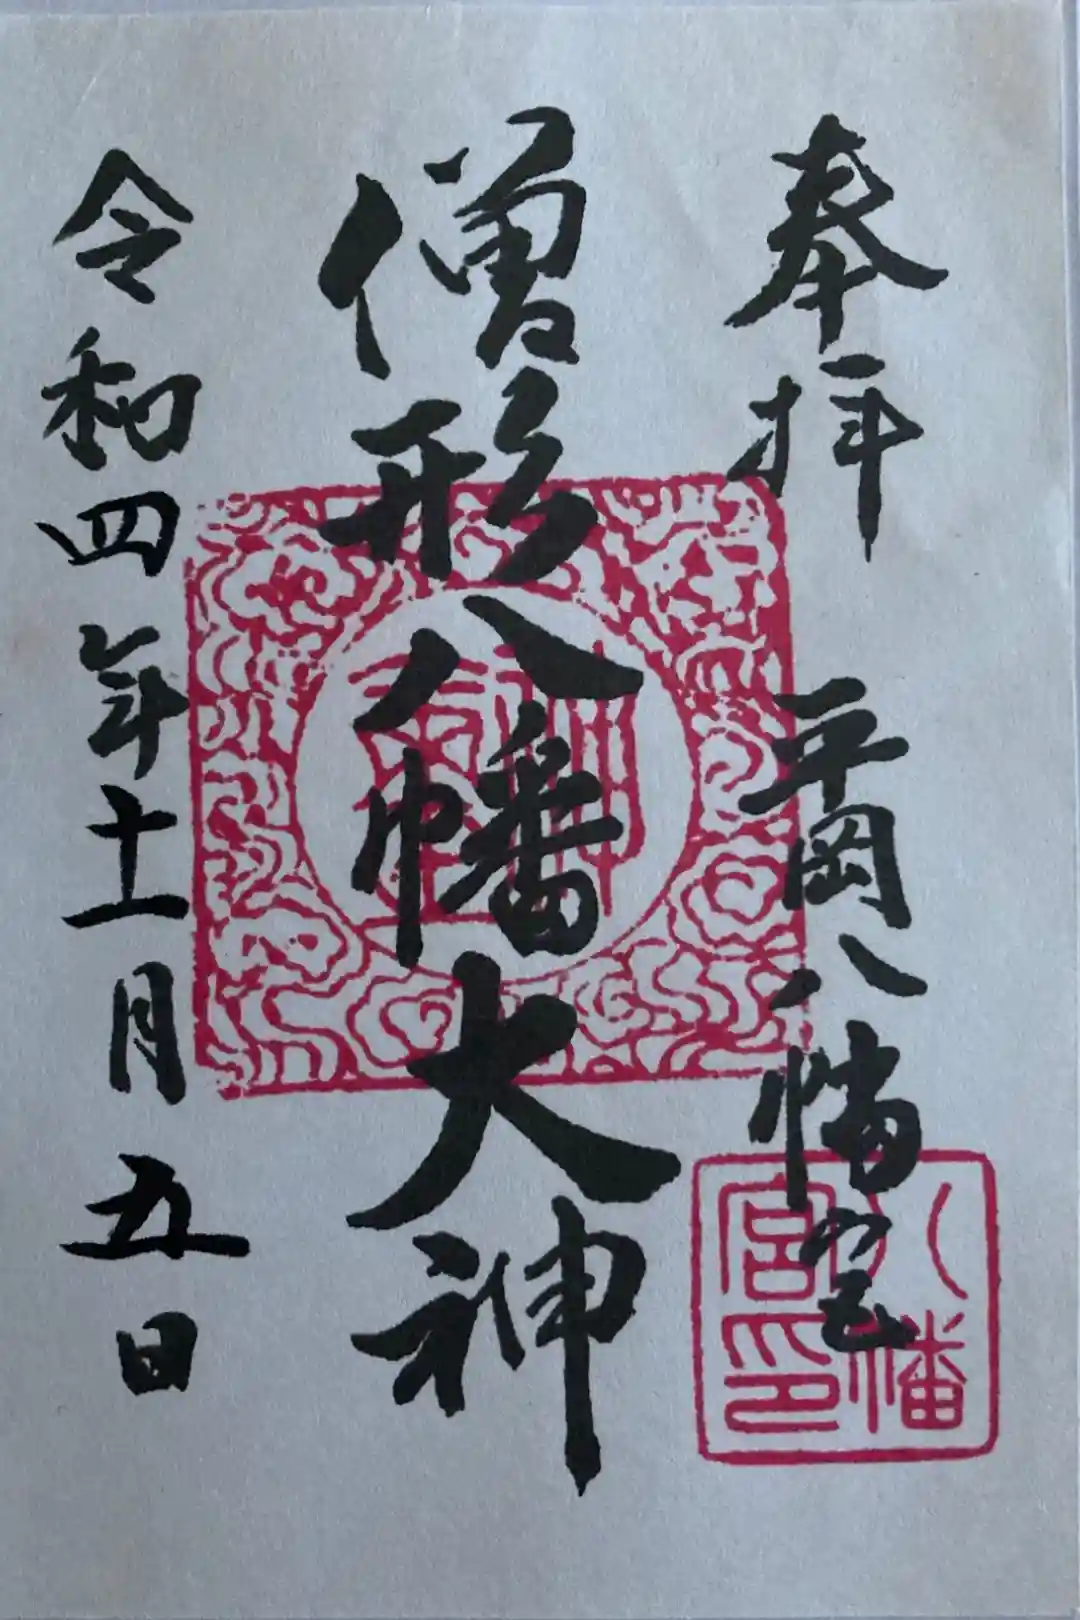 奉拝 平岡八幡宮
僧形八幡大神
令和四年十一月五日
八幡
宮印